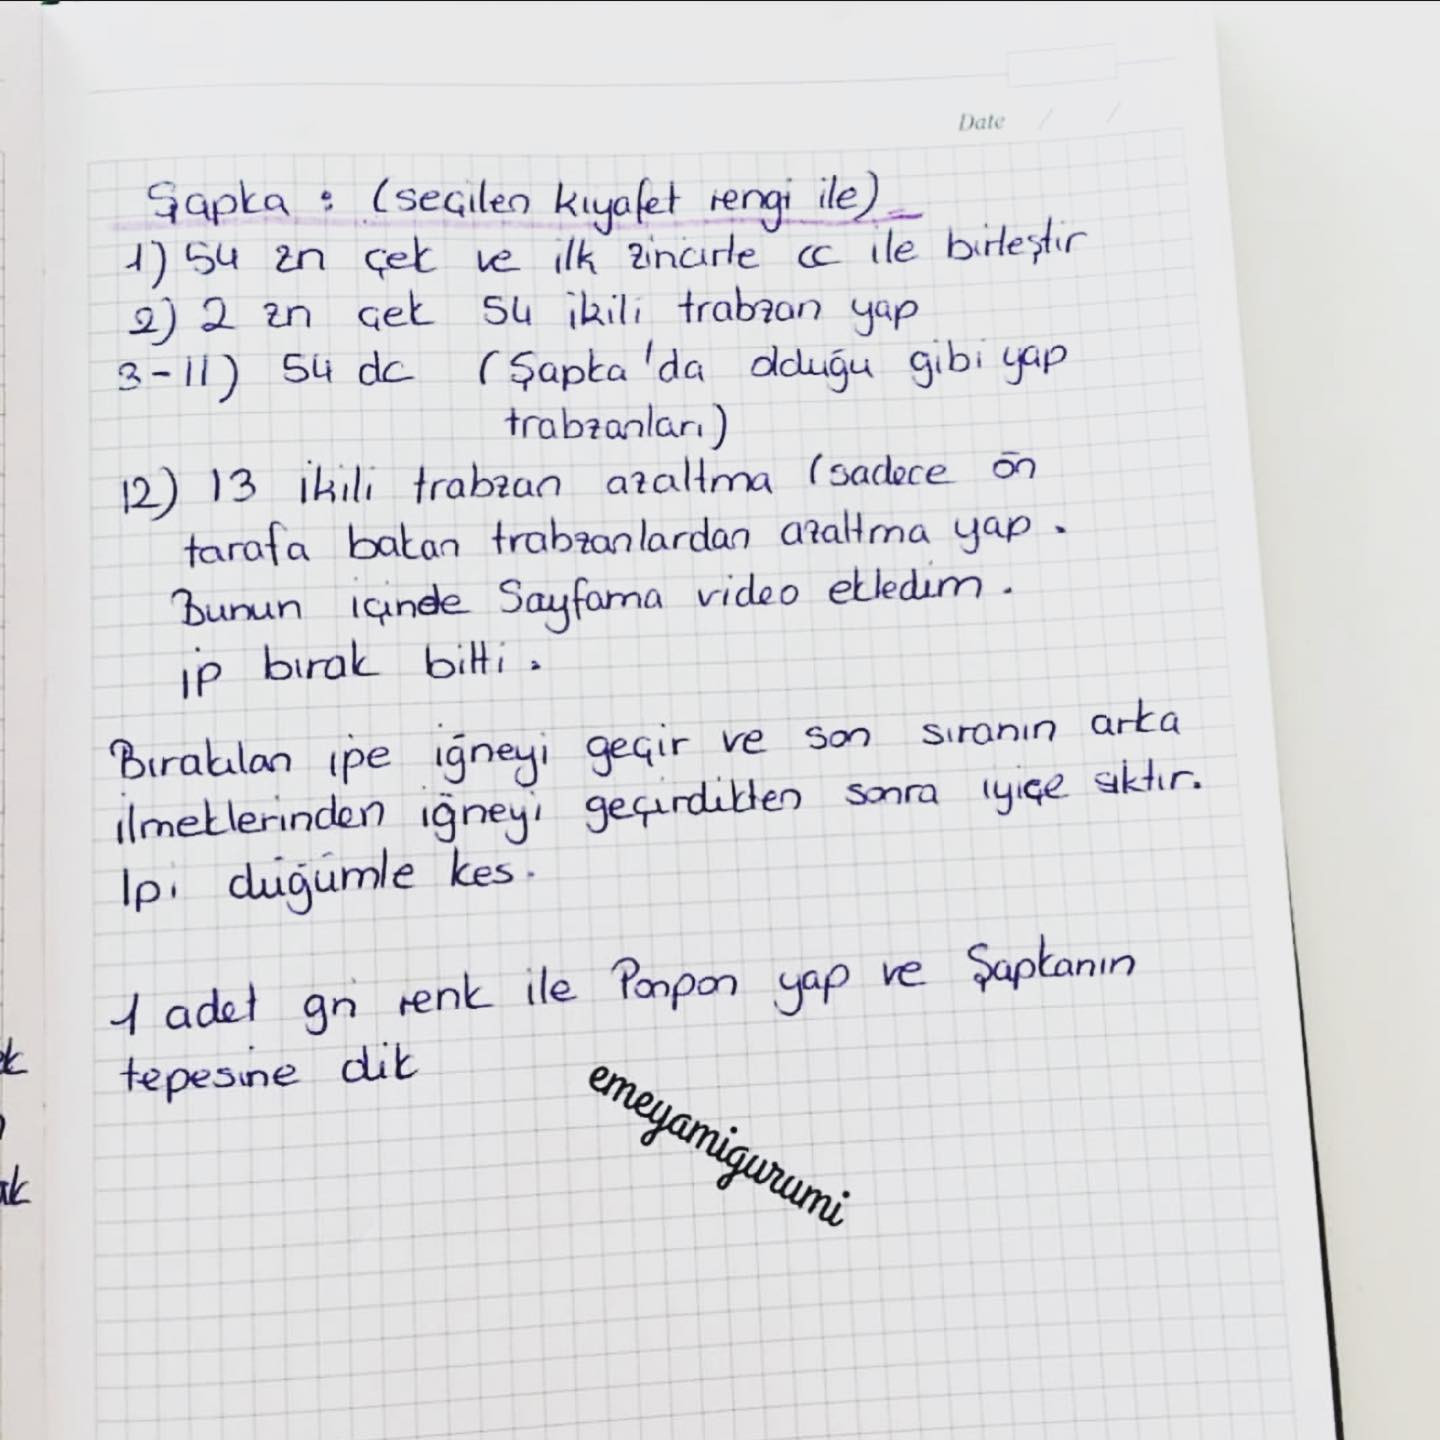 Date / /
Şapka : (seçilen kıyafet rengi ile)
1) 54 zn çek ve ilk zincirle cc ile birleştir
2) 2 zn çek 54 ikili trabzan yap
3-11) 54 dc (Şapka'da olduğu gibi yap
trabzanları)
12) 13 ikili trabzan azaltma (sadece ön
tarafa bakan trabzanlardan azaltma yap.
Bunun içinde Sayfama video ekledim.
ip bırak bitti.
Bırakılan ipe iğneyi geçir ve son sıranın arka
ilmeklerinden iğneyi geçirdikten sonra iyiçe sıktır.
Ipi düğümle kes.
1 adet gri renk ile Ponpon yap ve Şapkanın
tepesine dik
emeyamigurumi